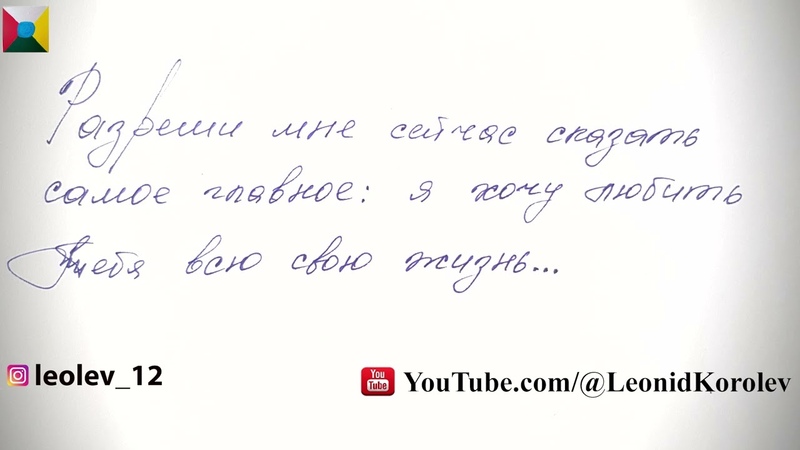 Разреши мне сейчас сказать
самое главное: я хочу любить
тебя всю свою жизнь...
leolev_12
You Tube YouTube.com/@LeonidKorolev